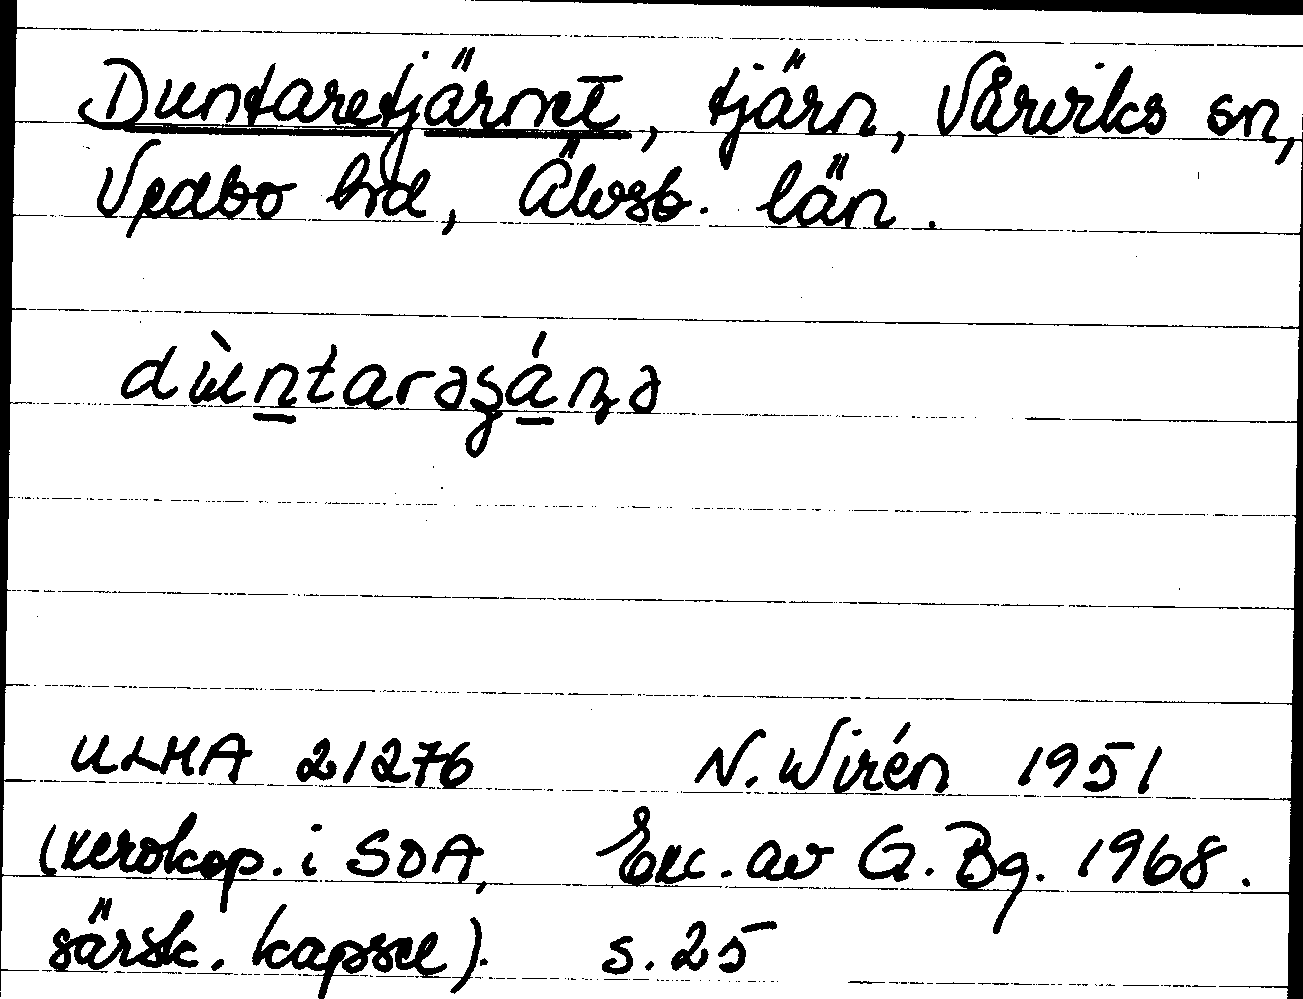 Duntaretjärnet, tjärn, Vårviks sn,
Vedbo hd, Älvsb. län.
dùntarəʂánə
ULMA 21276 N. Wirén 1951
(xerokop. i SOA, Exc. av G. Bg. 1968.
särsk. kapsel). s. 25